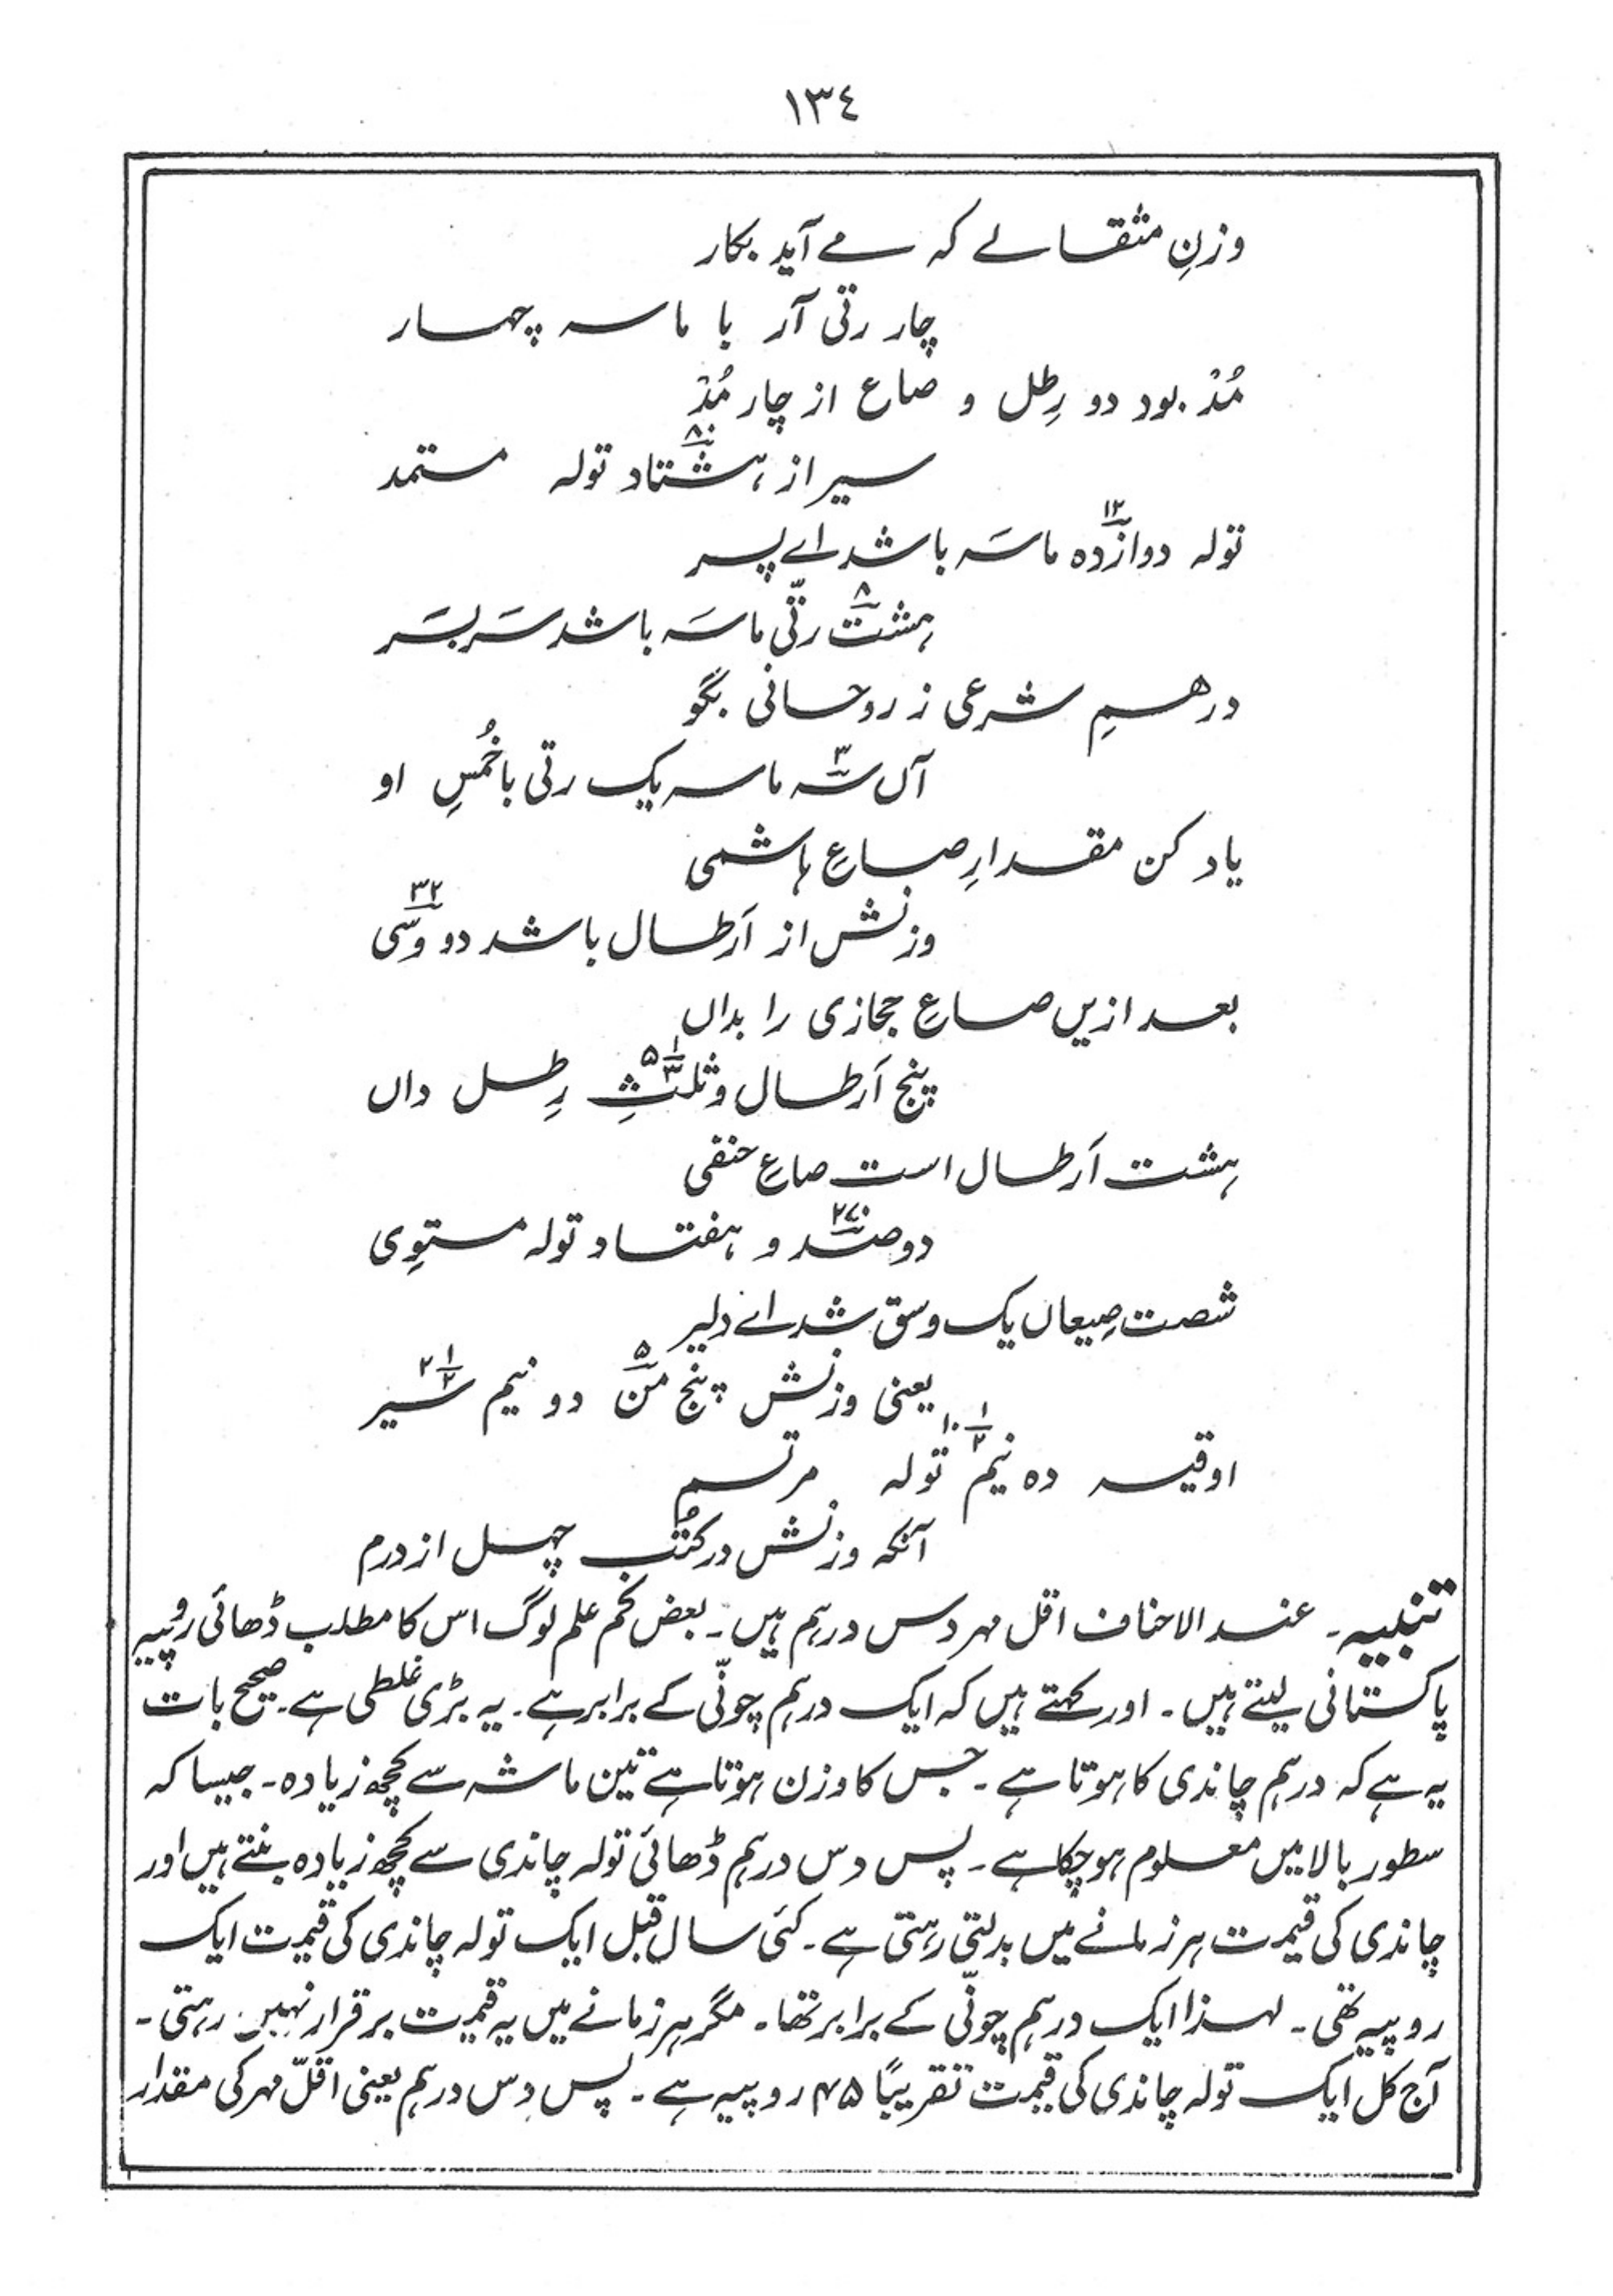 ۱۳٤
وزنِ مثقالے کہ مے آید بکار
چار رتی آر با ماسہ چہار
مُدْ بود دو رِطل و صاع از چار مُدْ
سیر از ہشتاد۸۰ تولہ مستمد
تولہ دوازدہ۱۲ ماسَہ باشد اے پسر
ہشت۸ رتّی ماسَہ باشد سَربسَر
درھمِ شرعی ز روحانی بگو
آں سہ۳ ماسہ یک رتی باخُمُسِ او
یاد کن مقدارِ صاعِ ہاشمی
وزنش از اَرطال باشد دو وسی۳۲
بعد ازیں صاعِ حجازی را بداں
پنج اَرطال وثلثِ ۵۱/۳ رِطل داں
ہشت اَرطال است صاعِ حنفی
دوصد۲۷۰ و ہفتاد تولہ مستوِی
شصت صِیعاں یک وسق شد اے دلیر
یعنی وزنش پنج من۵ دو نیم سیر ۲۱/۲
اوقیہ دہ نیم ۱۰۱/۲ تولہ مرتسم
آنکہ وزنش در کتُب چہل از درم
تنبیہ۔ عند الاحناف اقل مہر دس درہم ہیں۔ بعض کم علم لوگ اس کا مطلب ڈھائی روپیہ
پاکستانی لیتے ہیں۔ اور کہتے ہیں کہ ایک درہم چونّی کے برابر ہے۔ یہ بڑی غلطی ہے۔ صحیح بات
یہ ہے کہ درہم چاندی کا ہوتا ہے۔ جس کا وزن ہوتا ہے تین ماشہ سے کچھ زیادہ۔ جیسا کہ
سطور بالا میں معلوم ہو چکا ہے۔ پس دس درہم ڈھائی تولہ چاندی سے کچھ زیادہ بنتے ہیں اور
چاندی کی قیمت ہر زمانے میں بدلتی رہتی ہے۔ کئی سال قبل ایک تولہ چاندی کی قیمت ایک
روپیہ تھی۔ لہذا ایک درہم چونّی کے برابر تھا۔ مگر ہر زمانے میں یہ قیمت برقرار نہیں رہتی۔
آج کل ایک تولہ چاندی کی قیمت تقریبًا ۴۵ روپیہ ہے۔ پس دس درہم یعنی اقلّ مہر کی مقدار